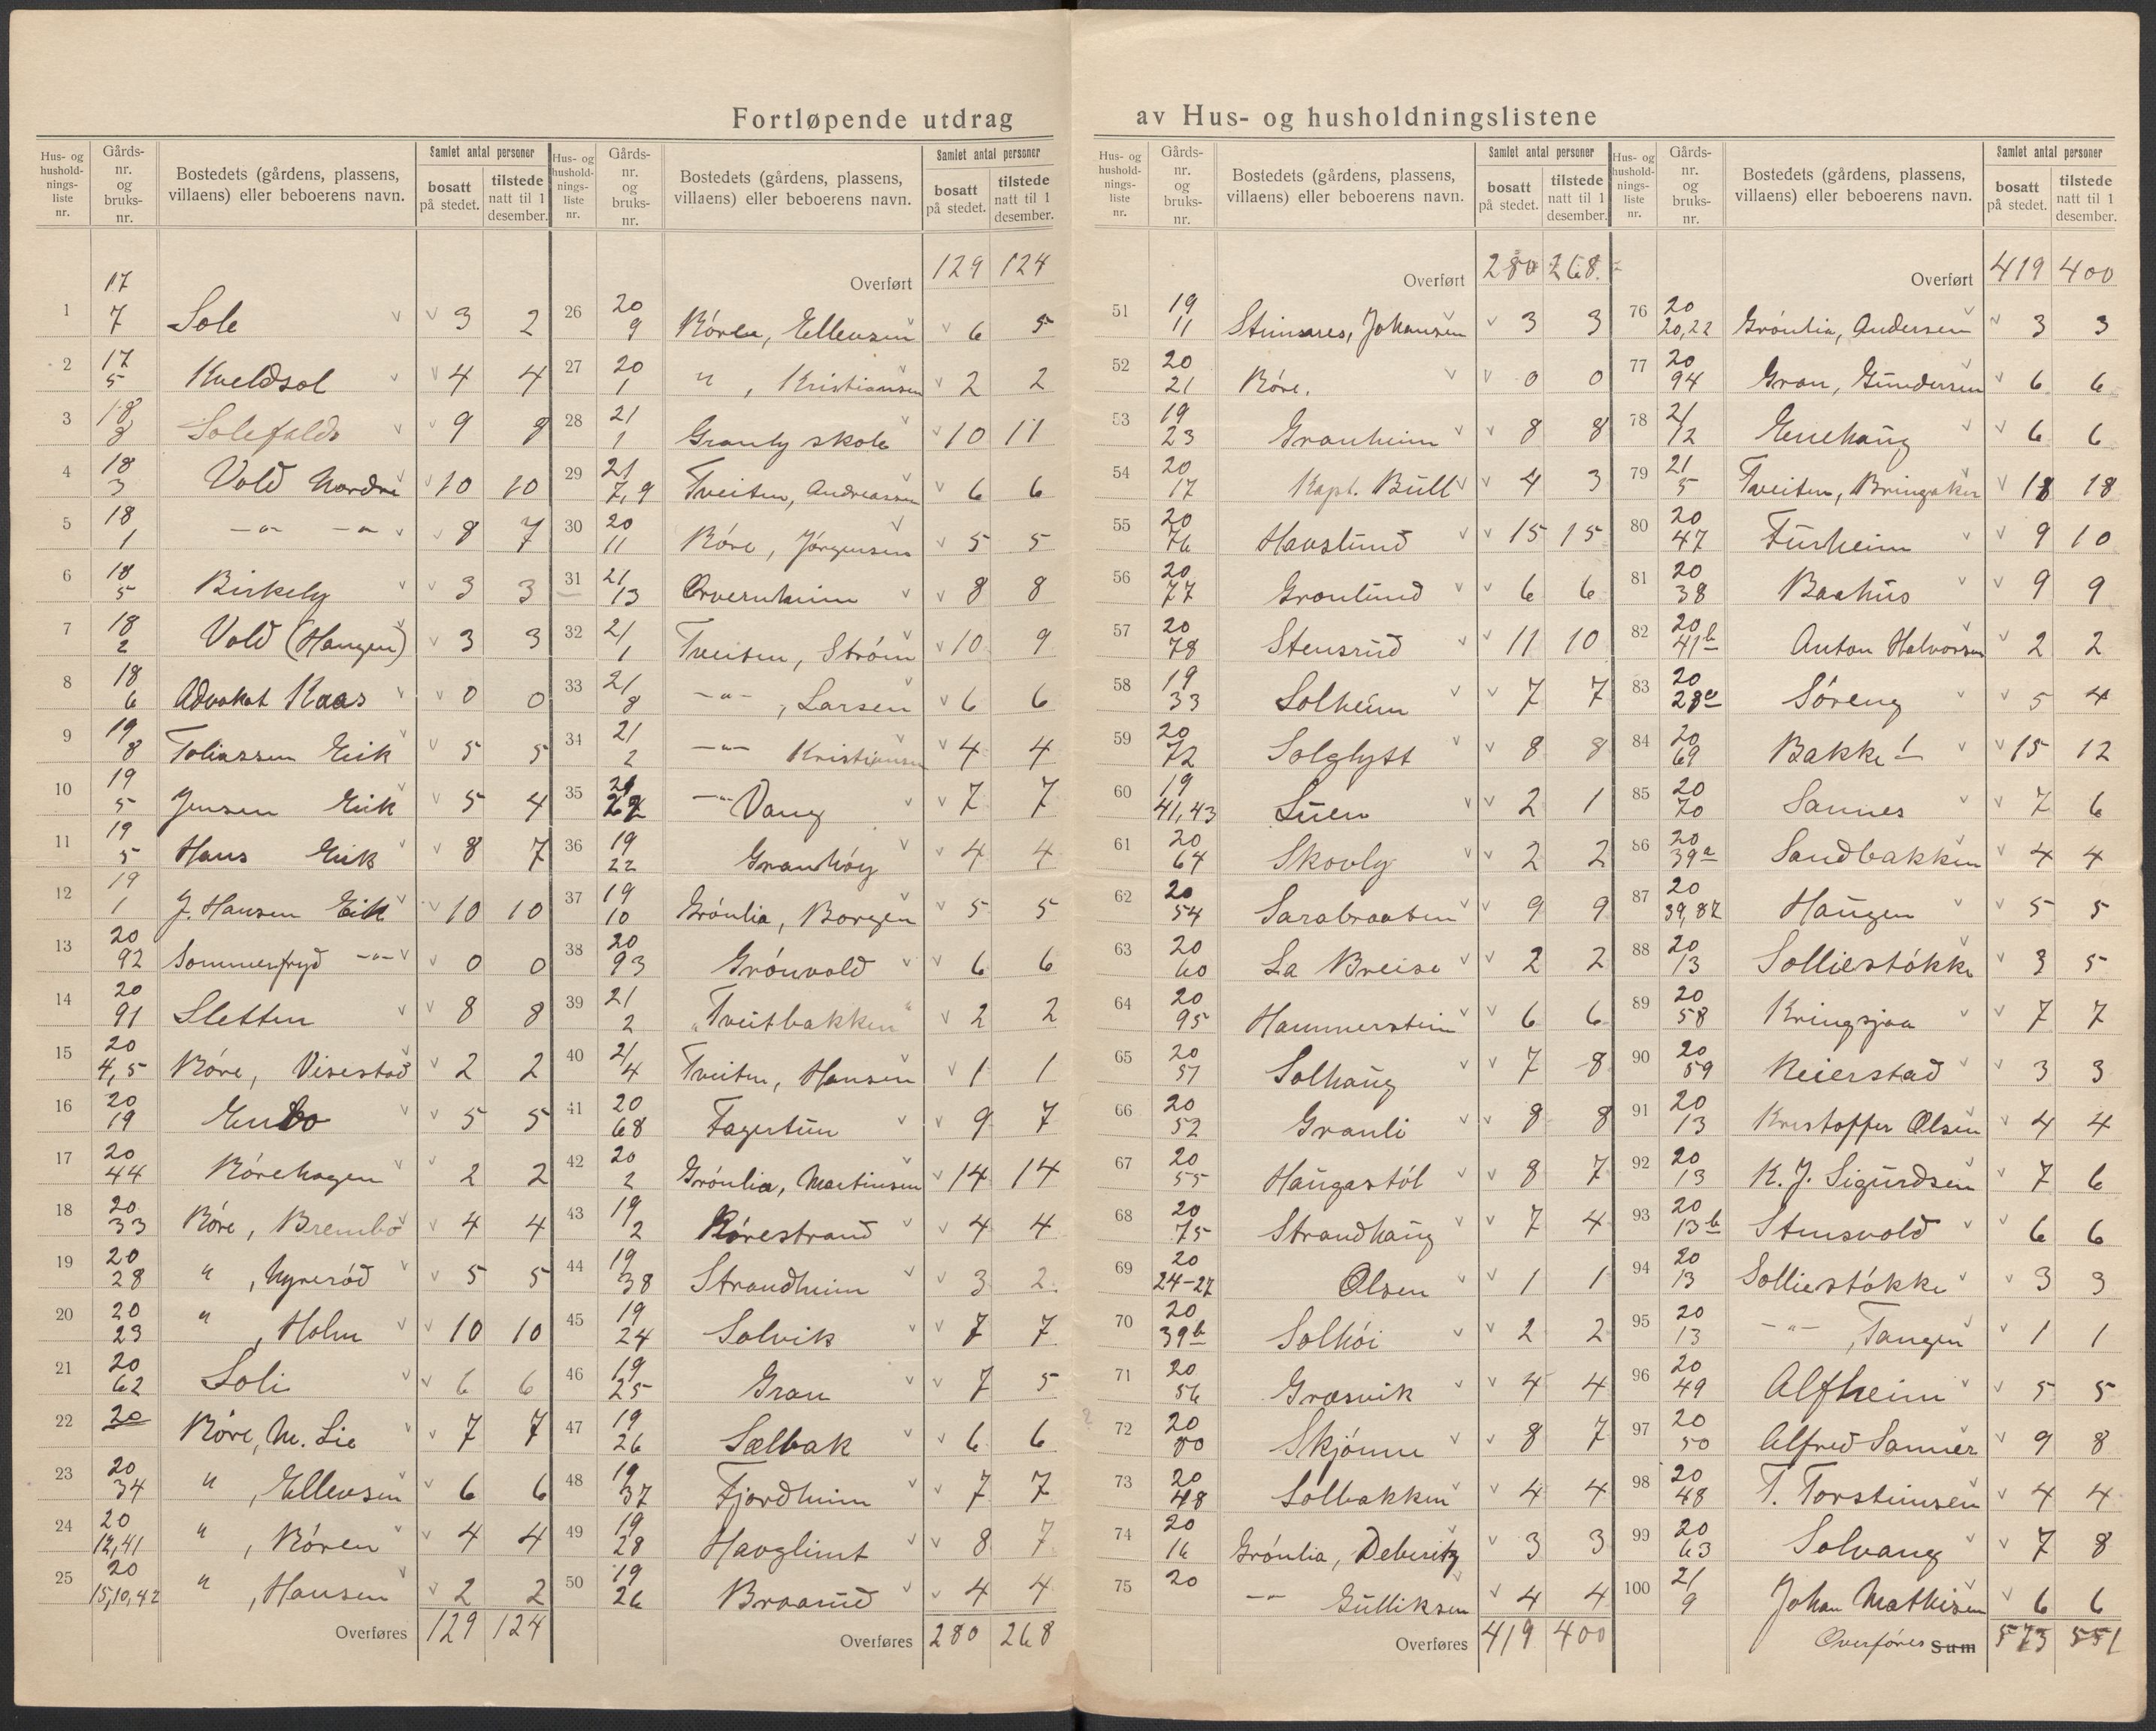 Fortløpende utdrag av Hus- og husholdningslistene
Hus- og hushold-nings-liste nr. | Gårds-nr. og bruks-nr. | Bostedets (gårdens, plassens, villaens) eller beboerens navn. | Samlet antal personer | bosatt på stedet. | tilstede natt til 1 desember.
1 17/7 Sole 3 2
2 17/5 Kveldsol 4 4
3 18/8 Solefalds 9 8
4 18/3 Vold Nordre 10 10
5 18/1 -"- -"- 8 7
6 18/5 Birkely 3 3
7 18/2 Vold (Haugen) 3 3
8 18/6 Advokat Kaas 0 0
9 19/8 Toliassen Eik 5 5
10 19/5 Jensen Eik 5 4
11 19/5 Hans Eik 8 7
12 19/1 J. Hansen Eik 10 10
13 20/92 Sommerfryd -"- 0 0
14 20/91 Sletten 8 8
15 20/4,5 Röre, Visestad 2 2
16 20/19 Enebo 5 5
17 20/44 Rörehagen 2 2
18 20/33 Röre, Brembo 4 4
19 20/28 " , Nyreröd 5 5
20 20/23 " , Holm 10 10
21 20/62 Soli 6 6
22 20 Röre, M. Lie 7 7
23 20/34 " , Ellevsen 6 6
24 20/12,41 " , Rören 4 4
25 20/15,10,42 " , Hansen 2 2
Overføres 129 124
Hus- og hushold-nings-liste nr. | Gårds-nr. og bruks-nr. | Bostedets (gårdens, plassens, villaens) eller beboerens navn. | Samlet antal personer | bosatt på stedet. | tilstede natt til 1 desember.
Overført 129 124
26 20/9 Rören, Ellevsen 6 5
27 20/1 " , Kristiansen 2 2
28 21/1 Granly skole 10 11
29 21/7,9 Tveiten, Andreassen 6 6
30 20/11 Röre, Jörgensen 5 5
31 21/13 Orvernheim 8 8
32 21/1 Tveiten, Ström 10 9
33 21/8 -"- , Larsen 6 6
34 21/2 -"- Kristiansen 4 4
35 -"- Vang 7 7
36 19/22 Granhöy 4 4
37 19/10 Grönlia, Borgen 5 5
38 20/93 Grönvold 6 6
39 21/2 "Tveitbakken" 2 2
40 21/4 Tveiten, Hansen 1 1
41 20/68 Fagertun 9 7
42 20/2 Grönlia, Martinsen 14 14
43 19/2 Rörestrand 4 4
44 19/38 Strandheim 3 2
45 19/24 Solvik 7 7
46 19/25 Gran 7 5
47 19/26 Sælbak 6 6
48 19/37 Fjordheim 7 7
49 19/28 Havglimt 8 7
50 19/26 Braarud 4 4
Overføres 280 268
Hus- og hushold-nings-liste nr. | Gårds-nr. og bruks-nr. | Bostedets (gårdens, plassens, villaens) eller beboerens navn. | Samlet antal personer | bosatt på stedet. | tilstede natt til 1 desember.
Overført 280 268
51 19/11 Stimsres, Johansen 3 3
52 20/21 Röre. 0 0
53 19/23 Granheim 8 8
54 20/17 Kapt. Bull 4 3
55 20/76 Havslund 15 15
56 20/77 Granlund 6 6
57 20/78 Stensrud 11 10
58 19/33 Solheim 7 7
59 20/72 Solglytt 8 8
60 19/41,43 Luen 2 1
61 20/64 Skovly 2 2
62 20/54 Sarabraaten 9 9
63 20/60 La Breise 2 2
64 20/95 Hammerstein 6 6
65 20/51 Solhaug 7 8
66 20/52 Granli 8 8
67 20/55 Haugastöl 8 7
68 20/75 Strandhaug 7 4
69 20/24-27 Olsen 1 1
70 20/39b Solhöi 2 2
71 20/56 Græsvik 4 4
72 20/80 Skjönne 8 7
73 20/48 Solbakken 4 4
74 20/16 Grönlia, Deberitz 3 3
75 20 -"- Gulliksen 4 4
Overføres 419 400
Hus- og hushold-nings-liste nr. | Gårds-nr. og bruks-nr. | Bostedets (gårdens, plassens, villaens) eller beboerens navn. | Samlet antal personer | bosatt på stedet. | tilstede natt til 1 desember.
Overført 419 400
76 20/20,22 Grönlia, Andersen 3 3
77 20/94 Gran, Gundersen 6 6
78 21/12 Enehaug 6 6
79 21/5 Tveiten, Bringaker 18 18
80 20/47 Furheim 9 10
81 20/38 Baahus 9 9
82 20/41b Anton Halvorsen 2 2
83 20/28a Söreng 5 4
84 20/69 Bakke 15 12
85 20/70 Sannes 7 6
86 20/39a Sandbakken 4 4
87 20/39,87 Haugen 5 5
88 20/13 Solliestökke 3 5
89 20/58 Kringsjaa 7 7
90 20/59 Reierstad 3 3
91 20/13 Kristoffer Olsen 4 4
92 20/13 K. J. Sigurdsen 7 6
93 20/13b Stensvold 6 6
94 20/13 Solliestökke 3 3
95 20/13 -"- , Tangen 1 1
96 20/49 Alfheim 5 5
97 20/50 Alfred Sannes 9 8
98 20/48 T. Torsteinsen 4 4
99 20/63 Solvang 7 8
100 21/9 Johan Mathisen 6 6
Overföres Sum 573 551